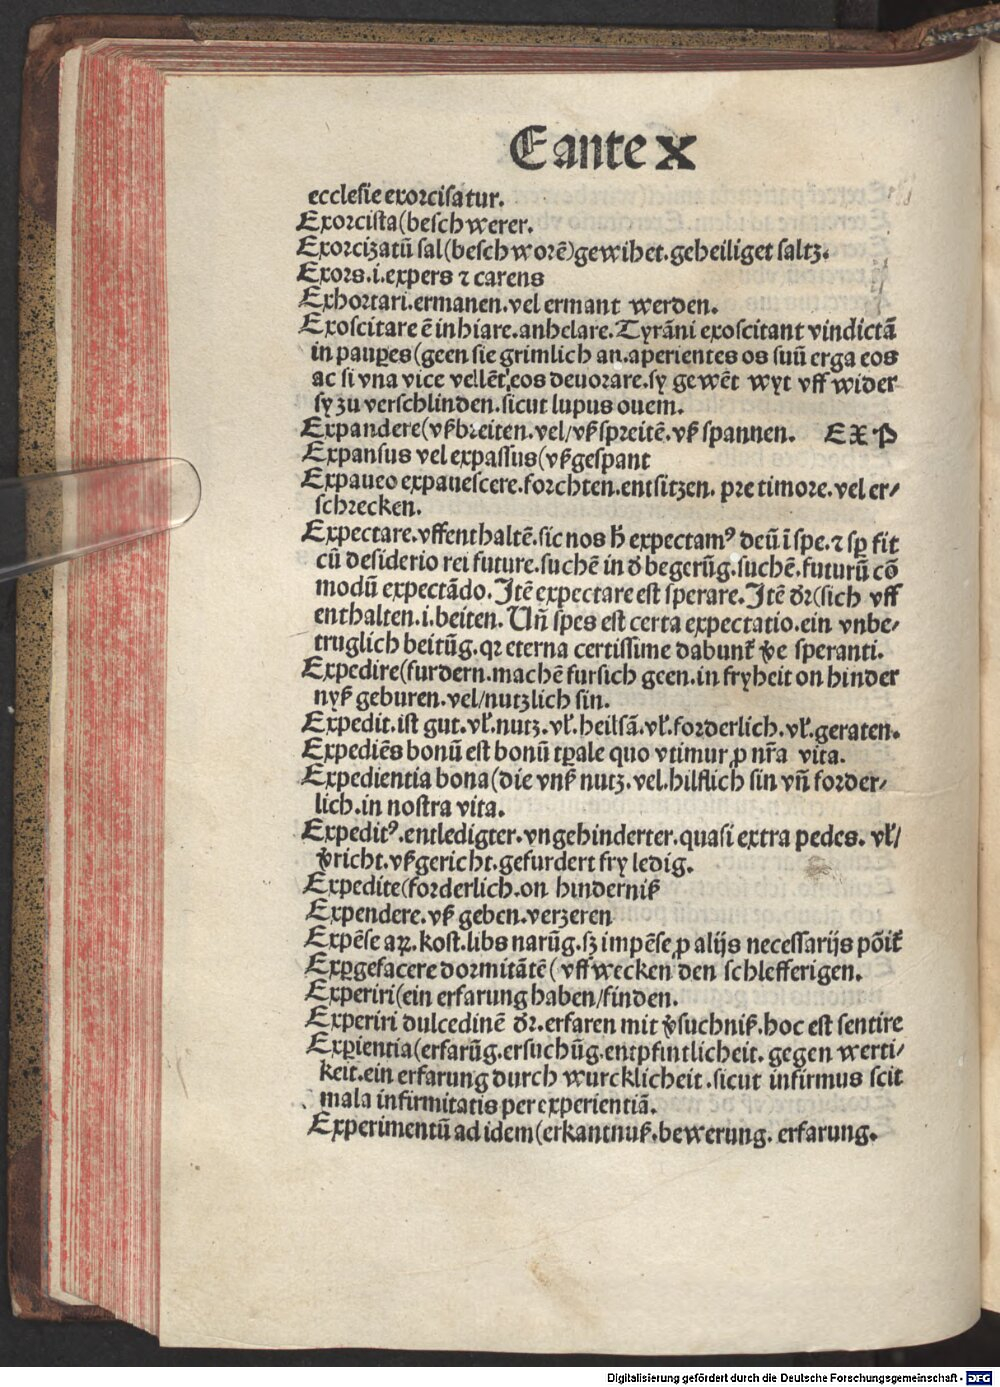 E ante x
ecclesie exorcisatur.
Exorcista(beschwerer.
Exorcizatū sal(beschworē)gewihet.geheiliget saltz.
Exors.i.expers ⁊ carens
Exhortari.ermanen.vel ermant werden.
Exoscitare ē inhiare.anhelare.Tyrāni exoscitant vindictā
in pauꝑes(geen sie grimlich an.aperientes os suū erga eos
ac si vna vice vellēt eos deuorare.sy gewēt wyt vff wider
sy zu verschlinden.sicut lupus ouem.
Expandere(vßbreiten.vel/vßspreitē.vß spannen. EX P
Expansus vel expassus(vßgespant
Expaueo expauescere.forchten.entsitzen. pre timore.vel er/
schrecken.
Expectare.vffenthaltē.sic nos h̄ expectamꝰ deū ī spe.⁊ sꝑ fit
cū desiderio rei future.suchē in ď begerūg.suchē.futurū cō
modū expectādo.Itē expectare est sperare.Itē dꝛ(sich vff
enthalten.i.beiten. Vñ spes est certa expectatio.ein vnbe/
truglich beitūg.qꝛ eterna certissime dabunt᷑ ṽe speranti.
Expedire(furdern.machē fursich geen.in fryheit on hinder
nyß geburen.vel/nutzlich sin.
Expedit.ist gut.vł.nutz.vł.heilsā.vł.forderlich.vł.geraten.
Expediēs bonū est bonū tꝑale quo vtimur ꝓ nr̄a vita.
Expedientia bona(die vnß nutz.vel.hilflich sin vñ forder/
lich.in nostra vita.
Expeditꝰ.entledigter.vngehinderter.quasi extra pedes. vł/
ṽricht.vßgericht.gefurdert fry ledig.
Expedite(forderlich.on hinderniß
Expendere.vß geben.verzeren
Expēse aꝝ.kost.libs narūg.sꝫ impēse ꝓ alijs necessarijs pōit᷑
Exꝑgefacere dormitātē(vffwecken den schlefferigen.
Experiri(ein erfarung haben/finden.
Experiri dulcedinē dꝛ.erfaren mit ṽsuchniß.hoc est sentire
Exꝑientia(erfarūg.ersuchūg.entpfintlicheit. gegen werti/
keit.ein erfarung durch wurcklicheit.sicut infirmus scit
mala infirmitatis per experientiā.
Experimentū ad idem(erkantnuß.bewerung. erfarung.
Digitalisierung gefördert durch die Deutsche Forschungsgemeinschaft - DFG